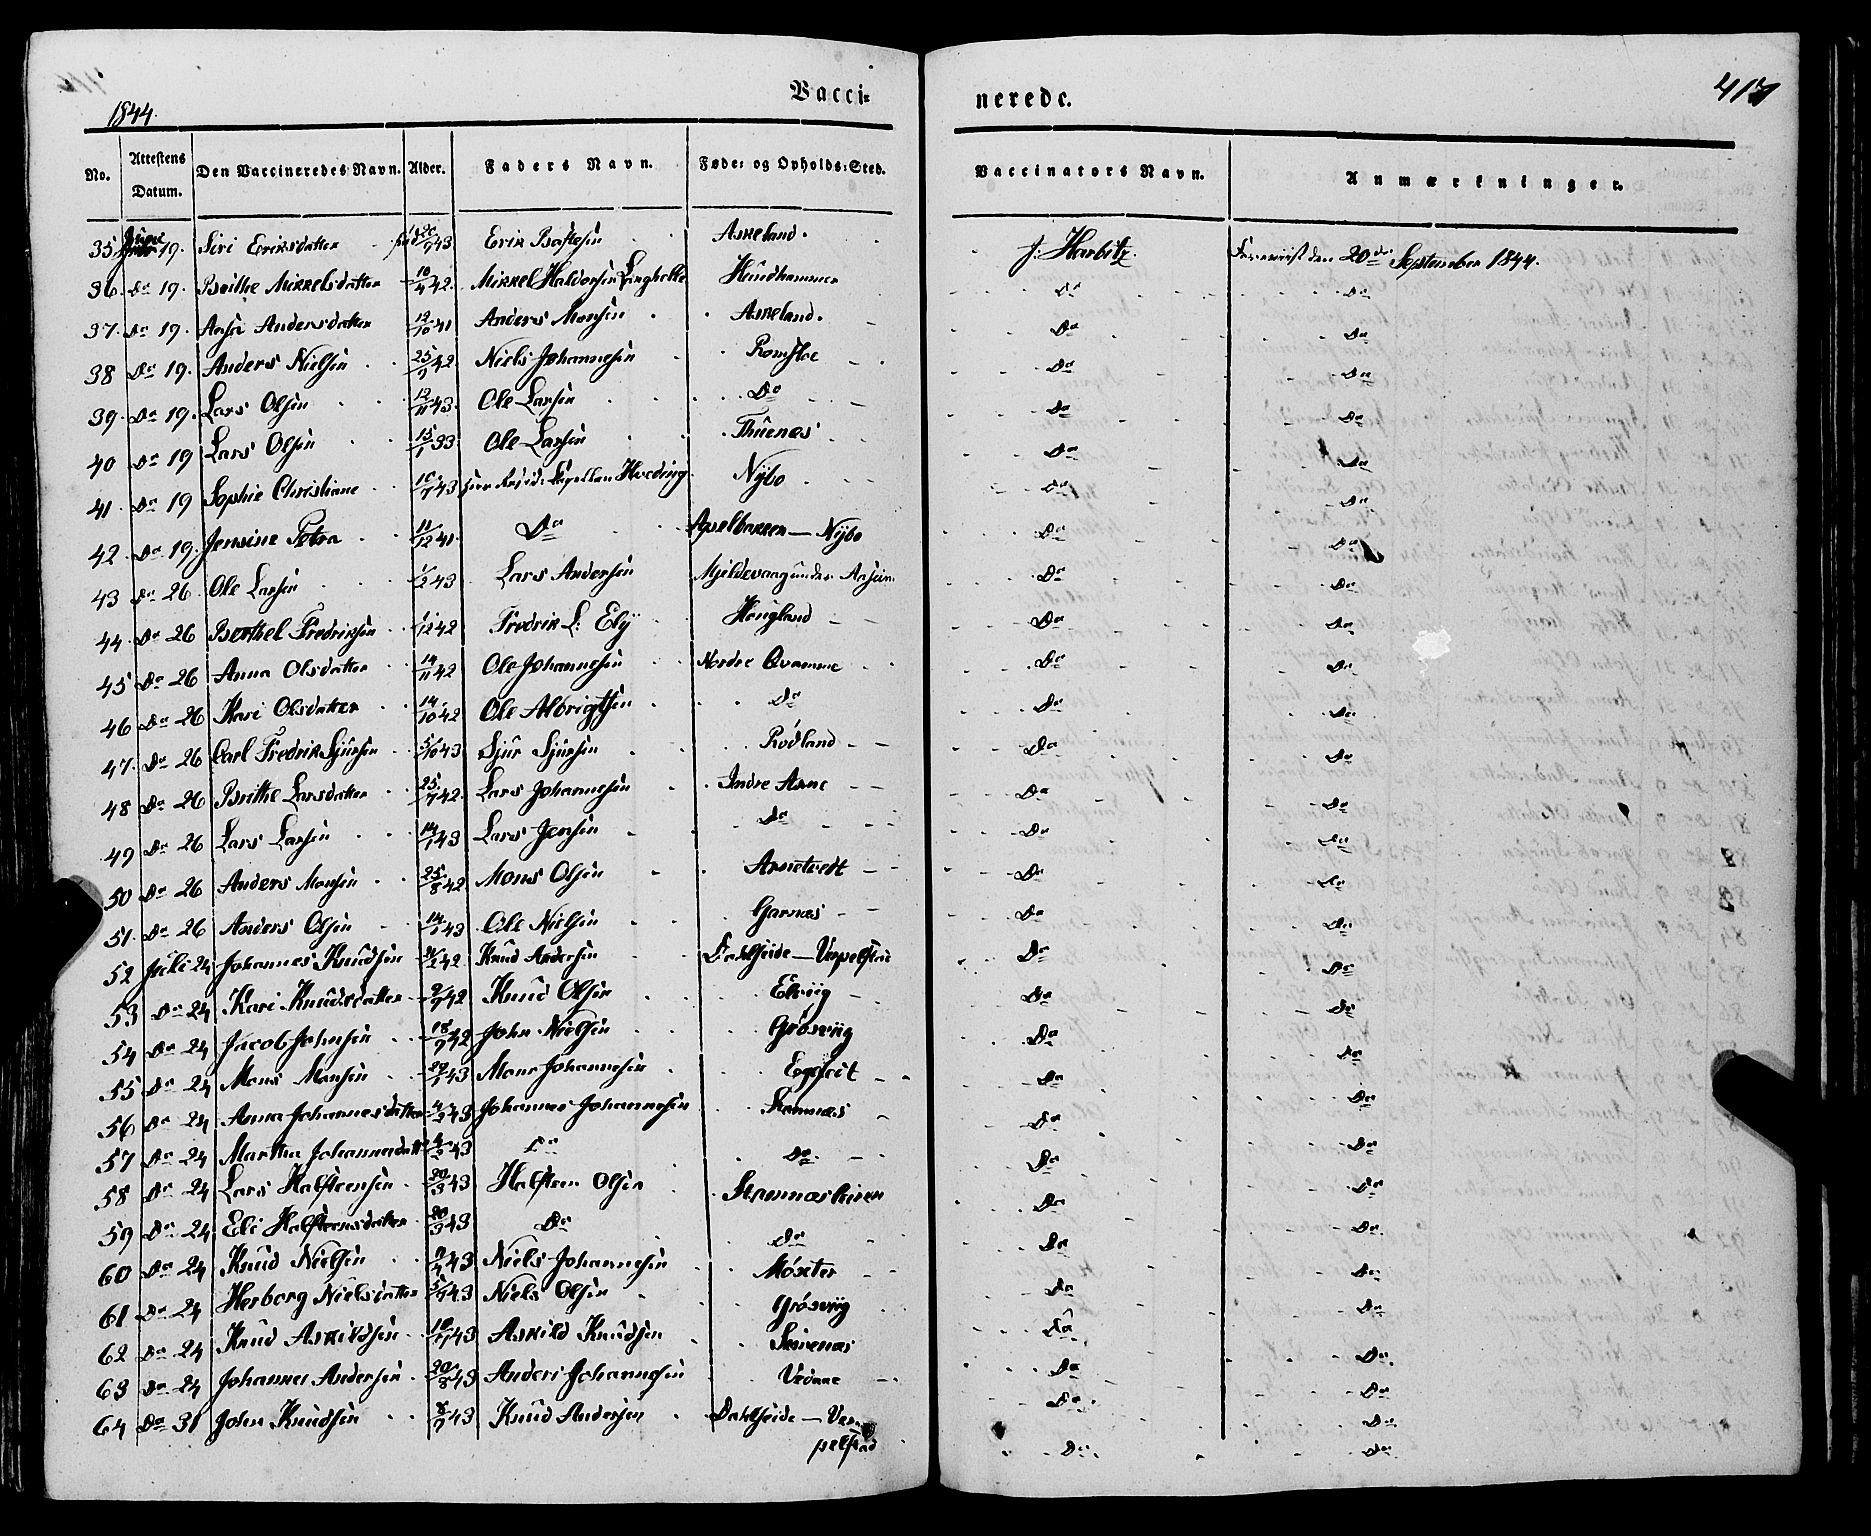 1844.
Vacci-
nerede.
417
No. Attestens Datum. Den Vaccineredes Navn. Alder. Faders Navn. Føde- og Opholds-Sted. Vaccinators Navn. Anmærkninger.
35 Juni 19. Siri Eriksdatter 9 43 Erik Askeland. J: Harbitz. Foreviist den 20de September 1844.
36. Do 19. Brithe Mikkelsdatter 10/4 42. Mikkel Haldorsen Houdhammer Do Do
37. Do 19. Anders Monsen Askeland. Do Do
38 Do 19. Anders Nielsen 25/9 42. Niels Johannesen Do Do
39. Do 19. Lars Olsen 12/11 43. Ole Larsen Do Do Do
40 Do 19 Lars Olsen 15/1 33 Ole Larsen Thuenæs Do Do
41. Do 19 Sophie Christiane 16/7 43 Capellan Hvoding. Nÿbo Do Do
42. Do 19. Jensine Petra 11/12 41. Do Apselbakken — Nÿbo Do Do
43 Do 26. Ole Larsen 1/2 43 Lars Andersen Mjeldevaag under Do Do
44. Do 26 Berthel Fredriksen 1/12 42 Fredrik L: Elÿ Hougland Do Do
45 Do 26 Anna Olsdatter 14/11 42 Ole Johannesen Nordre Qvamme Do Do
46 Do 26 Kari Olsdatter 14/10 42 Ole Albrigtsen Do Do Do
47. Do 26 Carl Fredrik Sjursen 5/10 43 Sjur Sjursen Rødland Do Do
48 Do 26 Brithe Larsdatter 25/7 42. Lars Johannesen Indre Arne Do Do
49 Do 26 Lars Larsen 14/1 43 Lars Jensen Do Do Do
50 Do 26 Anders Monsen 25/8 42 Mons Olsen Arnetvedt Do Do
51. Do 26 Anders Olsen 14/1 43 Ole Nielsen Garnæs Do Do
52 Juli 24 Johannes Knudsen 42 Knud Andersen Dahlseide — Do Do
53 Do 24 Kari Knudsdatter 2/9 42 Knud Olsen Elviig Do Do
54 Do 24 Jacob Johnsen 18/9 42 John Nielsen Grøsviig Do Do
55 Do 24 Mons Monsen 29/1 43 Mons Johannesen Do Do
56 Do 24 Anna Johannesdatter 4/2 43 Johannes Johannesen Do Do
57 Do 24 Martha Johannesdatt 43 Do Do. Do Do
58 Do 24 Lars Halsteensen 20/3 43 Halsteen Olsen Do Do
59 Do 24 Eli Halsteensdatter 20/3 43 Do Do Do Do
60 Do 24 Knud Nielsen 43 Niels Johannesen Møxter Do Do
61 Do 24 Herborg Nielsdatter 5/7 43 Niels Olsen Grøsviig Do Do
62 Do 24 Knud Askildsen 18/7 43 Askild Knudsen Do Do
63 Do 24 Johannes Andersen 20/8 43 Anders Johannesen Vedaae Do Do
64 Do 31 John Knudsen 8/9 43 Knud Andersen Dahlseide — Do Do